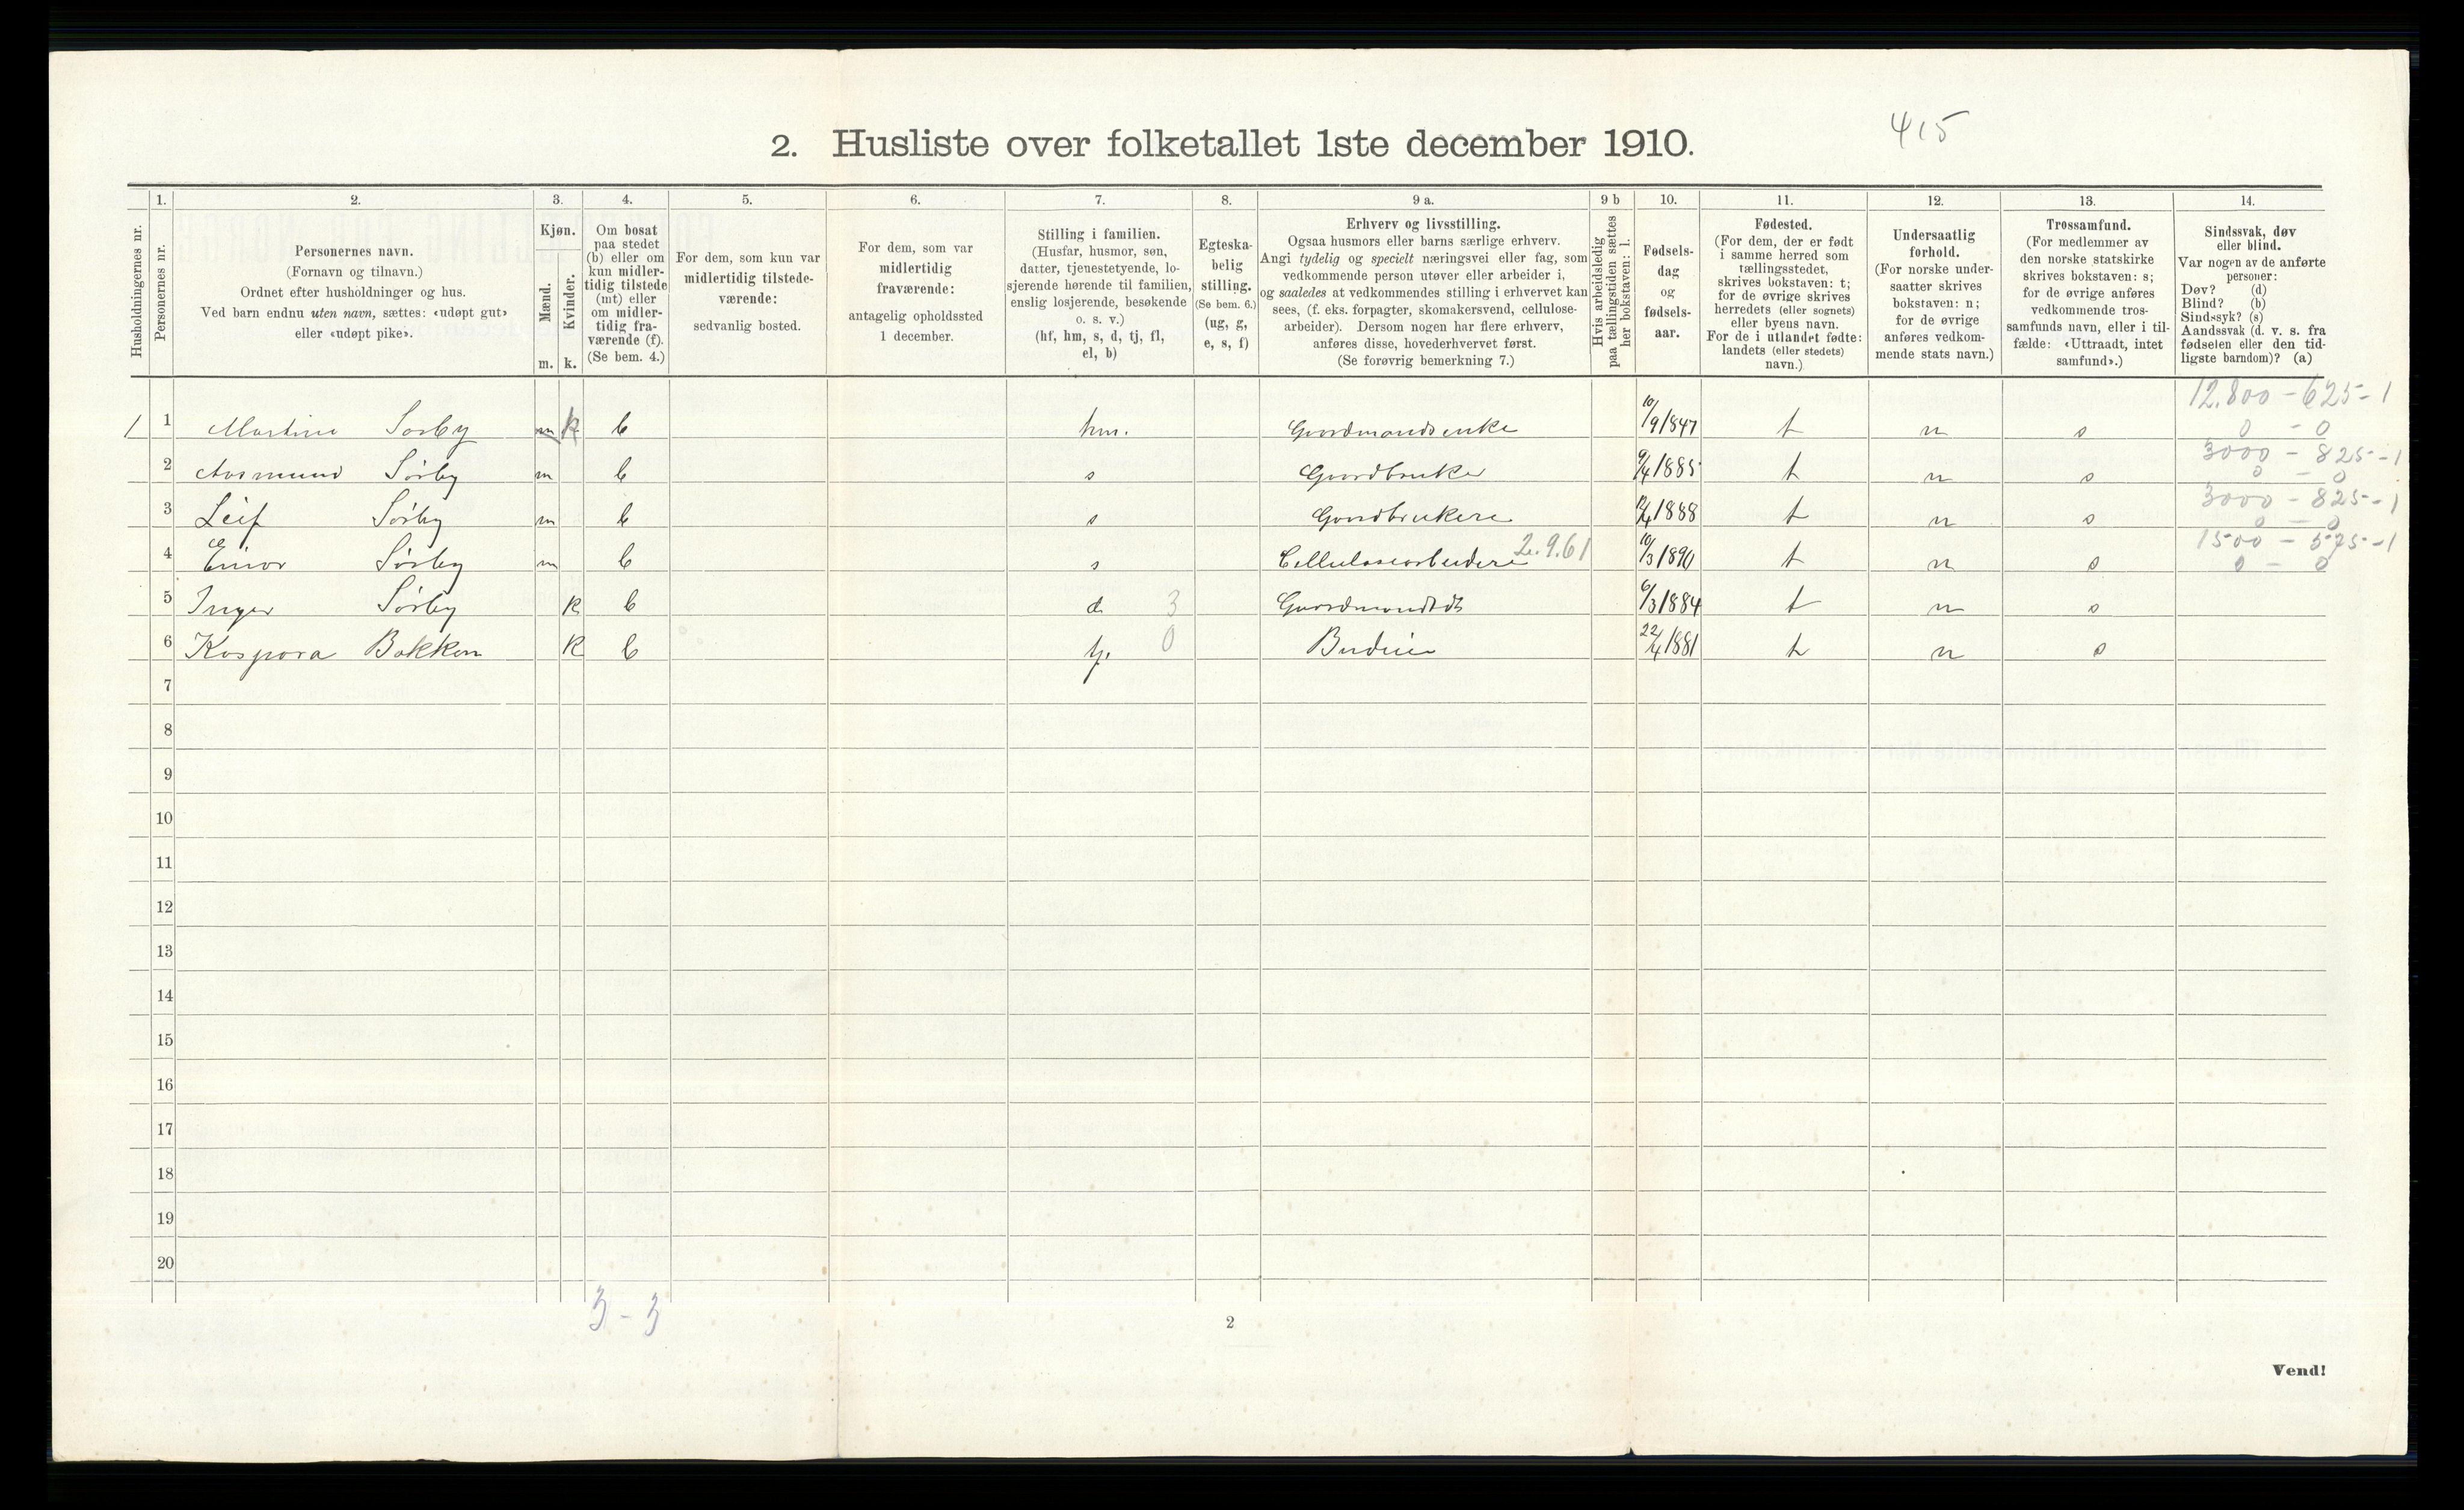 415
2. Husliste over folketallet 1ste december 1910.
Husholdningernes nr.
1. Personernes nr.
2. Personernes navn. (Fornavn og tilnavn.) Ordnet efter husholdninger og hus. Ved barn endnu uten navn, sættes: «udøpt gut» eller «udøpt pike».
3. Kjøn. Mænd. m. Kvinder. k.
4. Om bosat paa stedet (b) eller om kun midlertidig tilstede (mt) eller om midlertidig fraværende (f). (Se bem. 4.)
5. For dem, som kun var midlertidig tilstedeværende: sedvanlig bosted.
6. For dem, som var midlertidig fraværende: antagelig opholdssted 1 december.
7. Stilling i familien. (Husfar, husmor, søn, datter, tjenestetyende, losjerende hørende til familien, enslig losjerende, besøkende o. s. v.) (hf, hm, s, d, tj, fl, el, b)
8. Egteskabelig stilling. (Se bem. 6.) (ug, g, e, s, f)
9 a. Erhverv og livsstilling. Ogsaa husmors eller barns særlige erhverv. Angi tydelig og specielt næringsvei eller fag, som vedkommende person utøver eller arbeider i, og saaledes at vedkommendes stilling i erhvervet kan sees, (f. eks. forpagter, skomakersvend, cellulosearbeider). Dersom nogen har flere erhverv, anføres disse, hovederhvervet først. (Se forøvrig bemerkning 7.)
9 b Hvis arbeidsledig paa tællingstiden sættes her bokstaven: l.
10. Fødselsdag og fødselsaar.
11. Fødested. (For dem, der er født i samme herred som tællingsstedet, skrives bokstaven: t; for de øvrige skrives herredets (eller sognets) eller byens navn. For de i utlandet fødte: landets (eller stedets) navn.)
12. Undersaatlig forhold. (For norske undersaatter skrives bokstaven: n; for de øvrige anføres vedkommende stats navn.)
13. Trossamfund. (For medlemmer av den norske statskirke skrives bokstaven: s; for de øvrige anføres vedkommende trossamfunds navn, eller i tilfælde: «Uttraadt, intet samfund».)
14. Sindssvak, døv eller blind. Var nogen av de anførte personer: Døv? (d) Blind? (b) Sindssyk? (s) Aandssvak (d. v. s. fra fødselen eller den tidligste barndom)? (a)
12.800 - 625 - 1
1 1 Martine Sørby m k b hm. Gaardmandsenke 10/9 1847 t n s 0 - 0
3000 - 825 - 1
2 Aasmund Sørby m b s Gaardbruker 9/4 1885 t n s 0 - 0
3000 - 825 - 1
3 Leif Sørby m b s Gaardbrukere 12/4 1888 t n s 0 - 0
1500 - 575 - 1
4 Einar Sørby m b s Cellulosearbeidere 2.9.61 10/3 1890 t n s 0 - 0
5 Inger Sørby k b d 3 Gaardmandsdt 6/3 1884 t n s
6 Kaspara Bakken k b tj. 0 Budeie 22/4 1881 t n s
7
8
9
10
11
12
13
14
15
16
17
18
19
20
3 - 3
2
Vend!